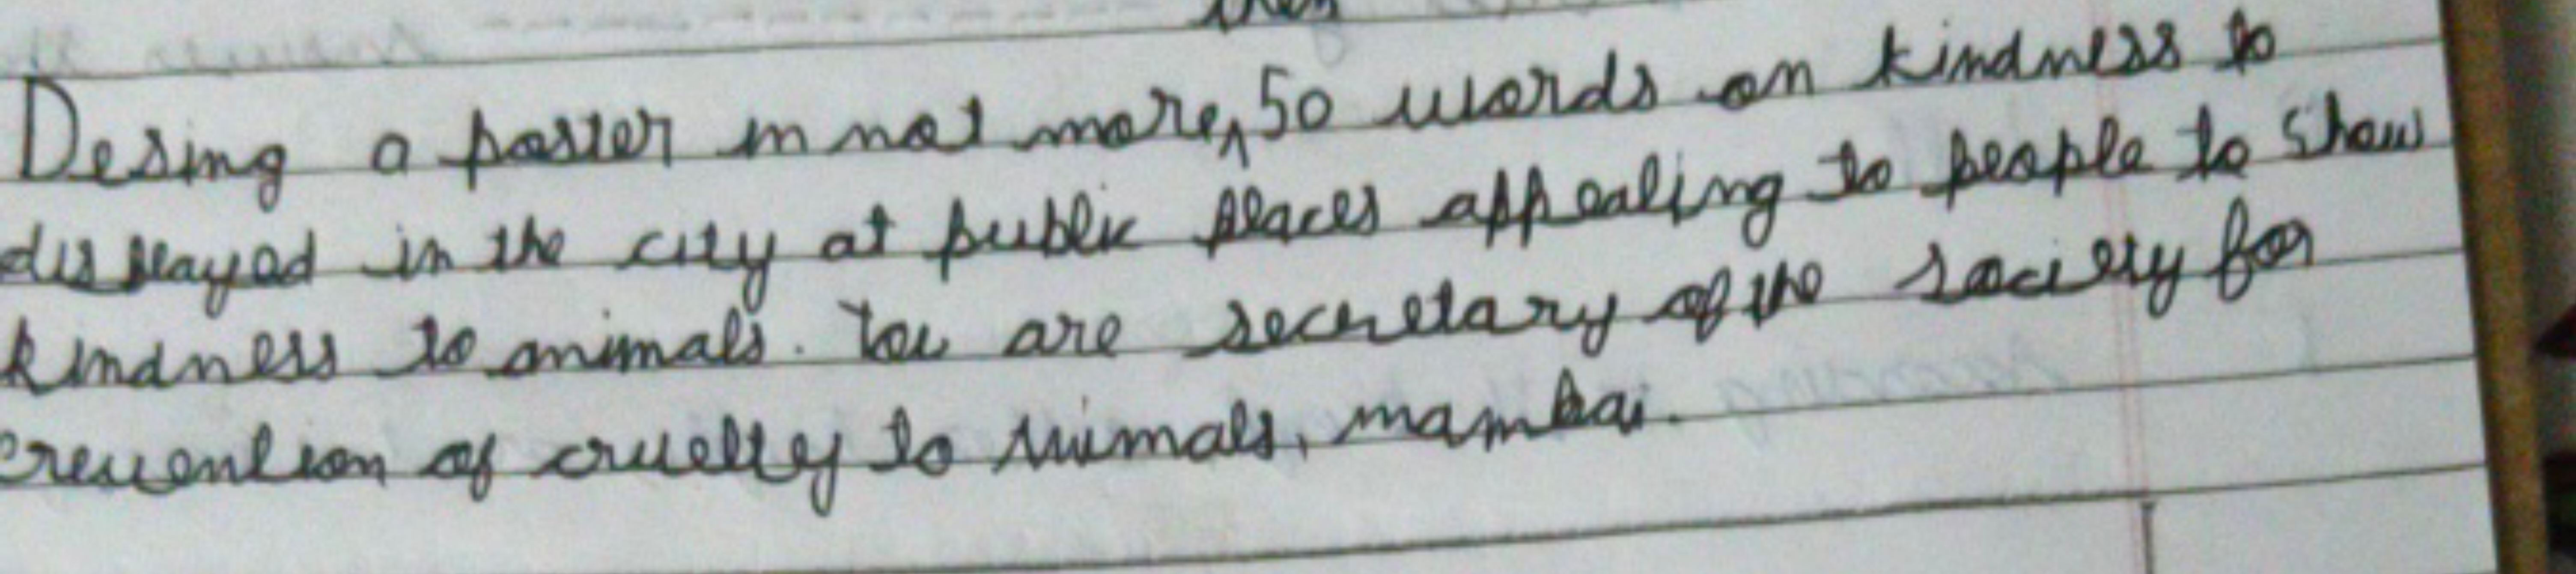 then
Desing a poster in not more 50 words on kindness to
displayed in the city at public places appealing to people to show
kindness to animals. You are secretary of the society for
prevention of cruelty to animals, mambai.